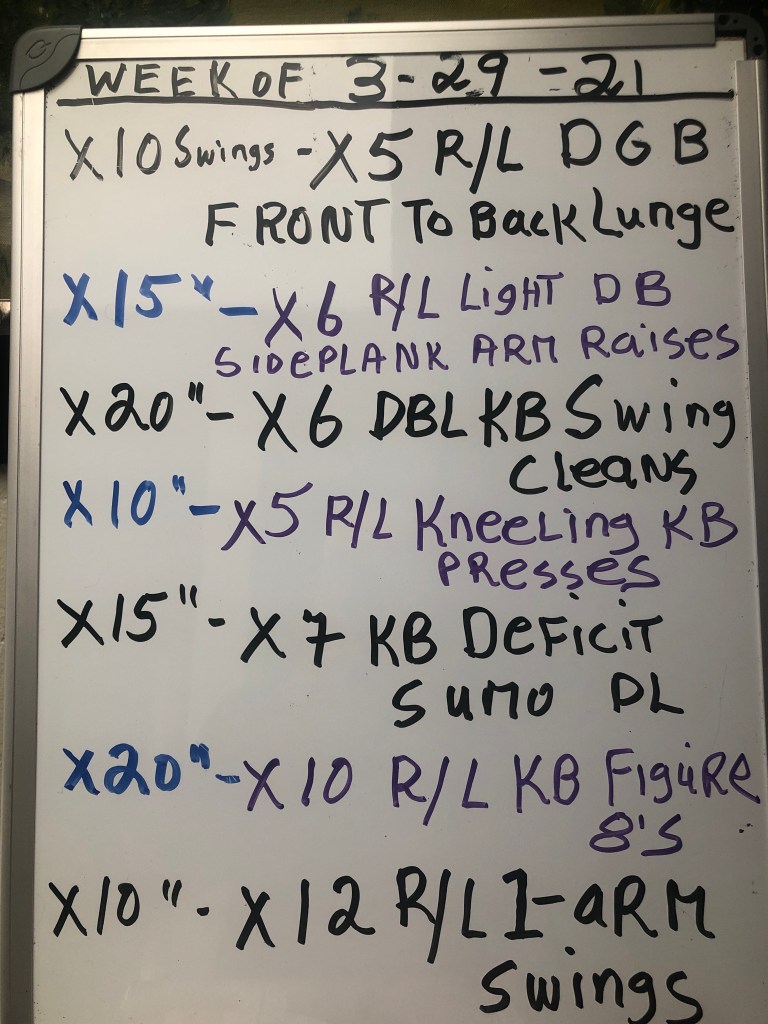 WEEK OF 3-29-21
X10 Swings - X5 R/L DGB
FRONT To Back Lunge
X15" - X6 R/L LigHT DB
SIDePLANK ARM Raises
X20" - X6 DBL KB Swing
CLeaNS
X10" - X5 R/L KneeLing KB
PResses
X15" - X7 KB DeFiCiT
SUMO DL
X20" - X10 R/L KB FiguRe
8'S
X10" - X12 R/L 1-aRM
Swings